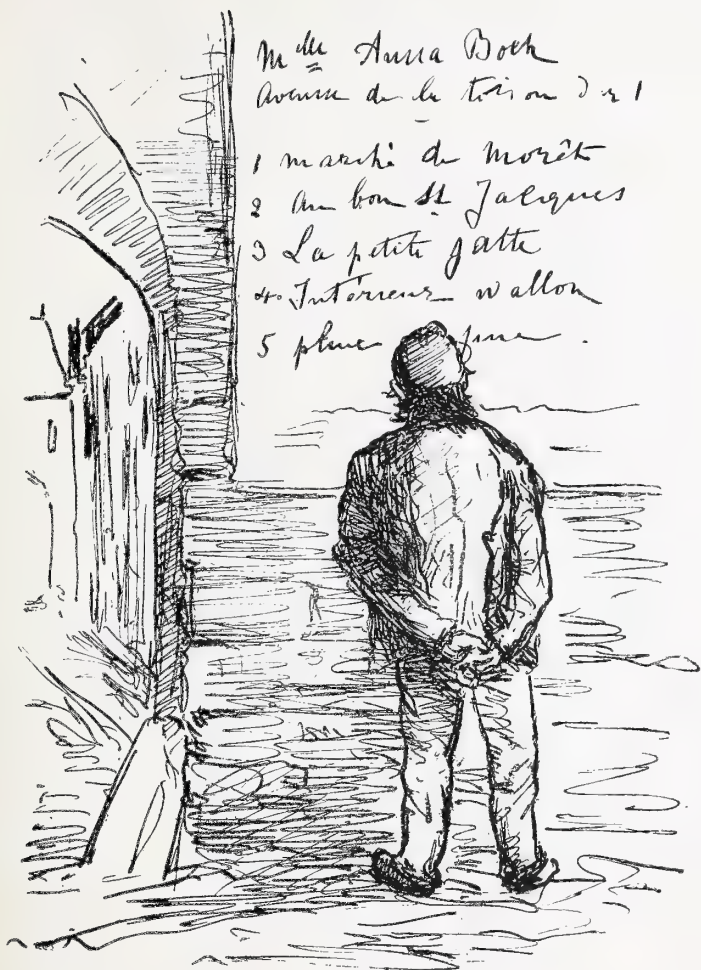 Mlle Anna Boch
avenue de la toison d'or 1
1 marché de Morêt
2 au bon St Jacques
3 La petite jatte
4. Intérieur wallon
5 pluie fine.